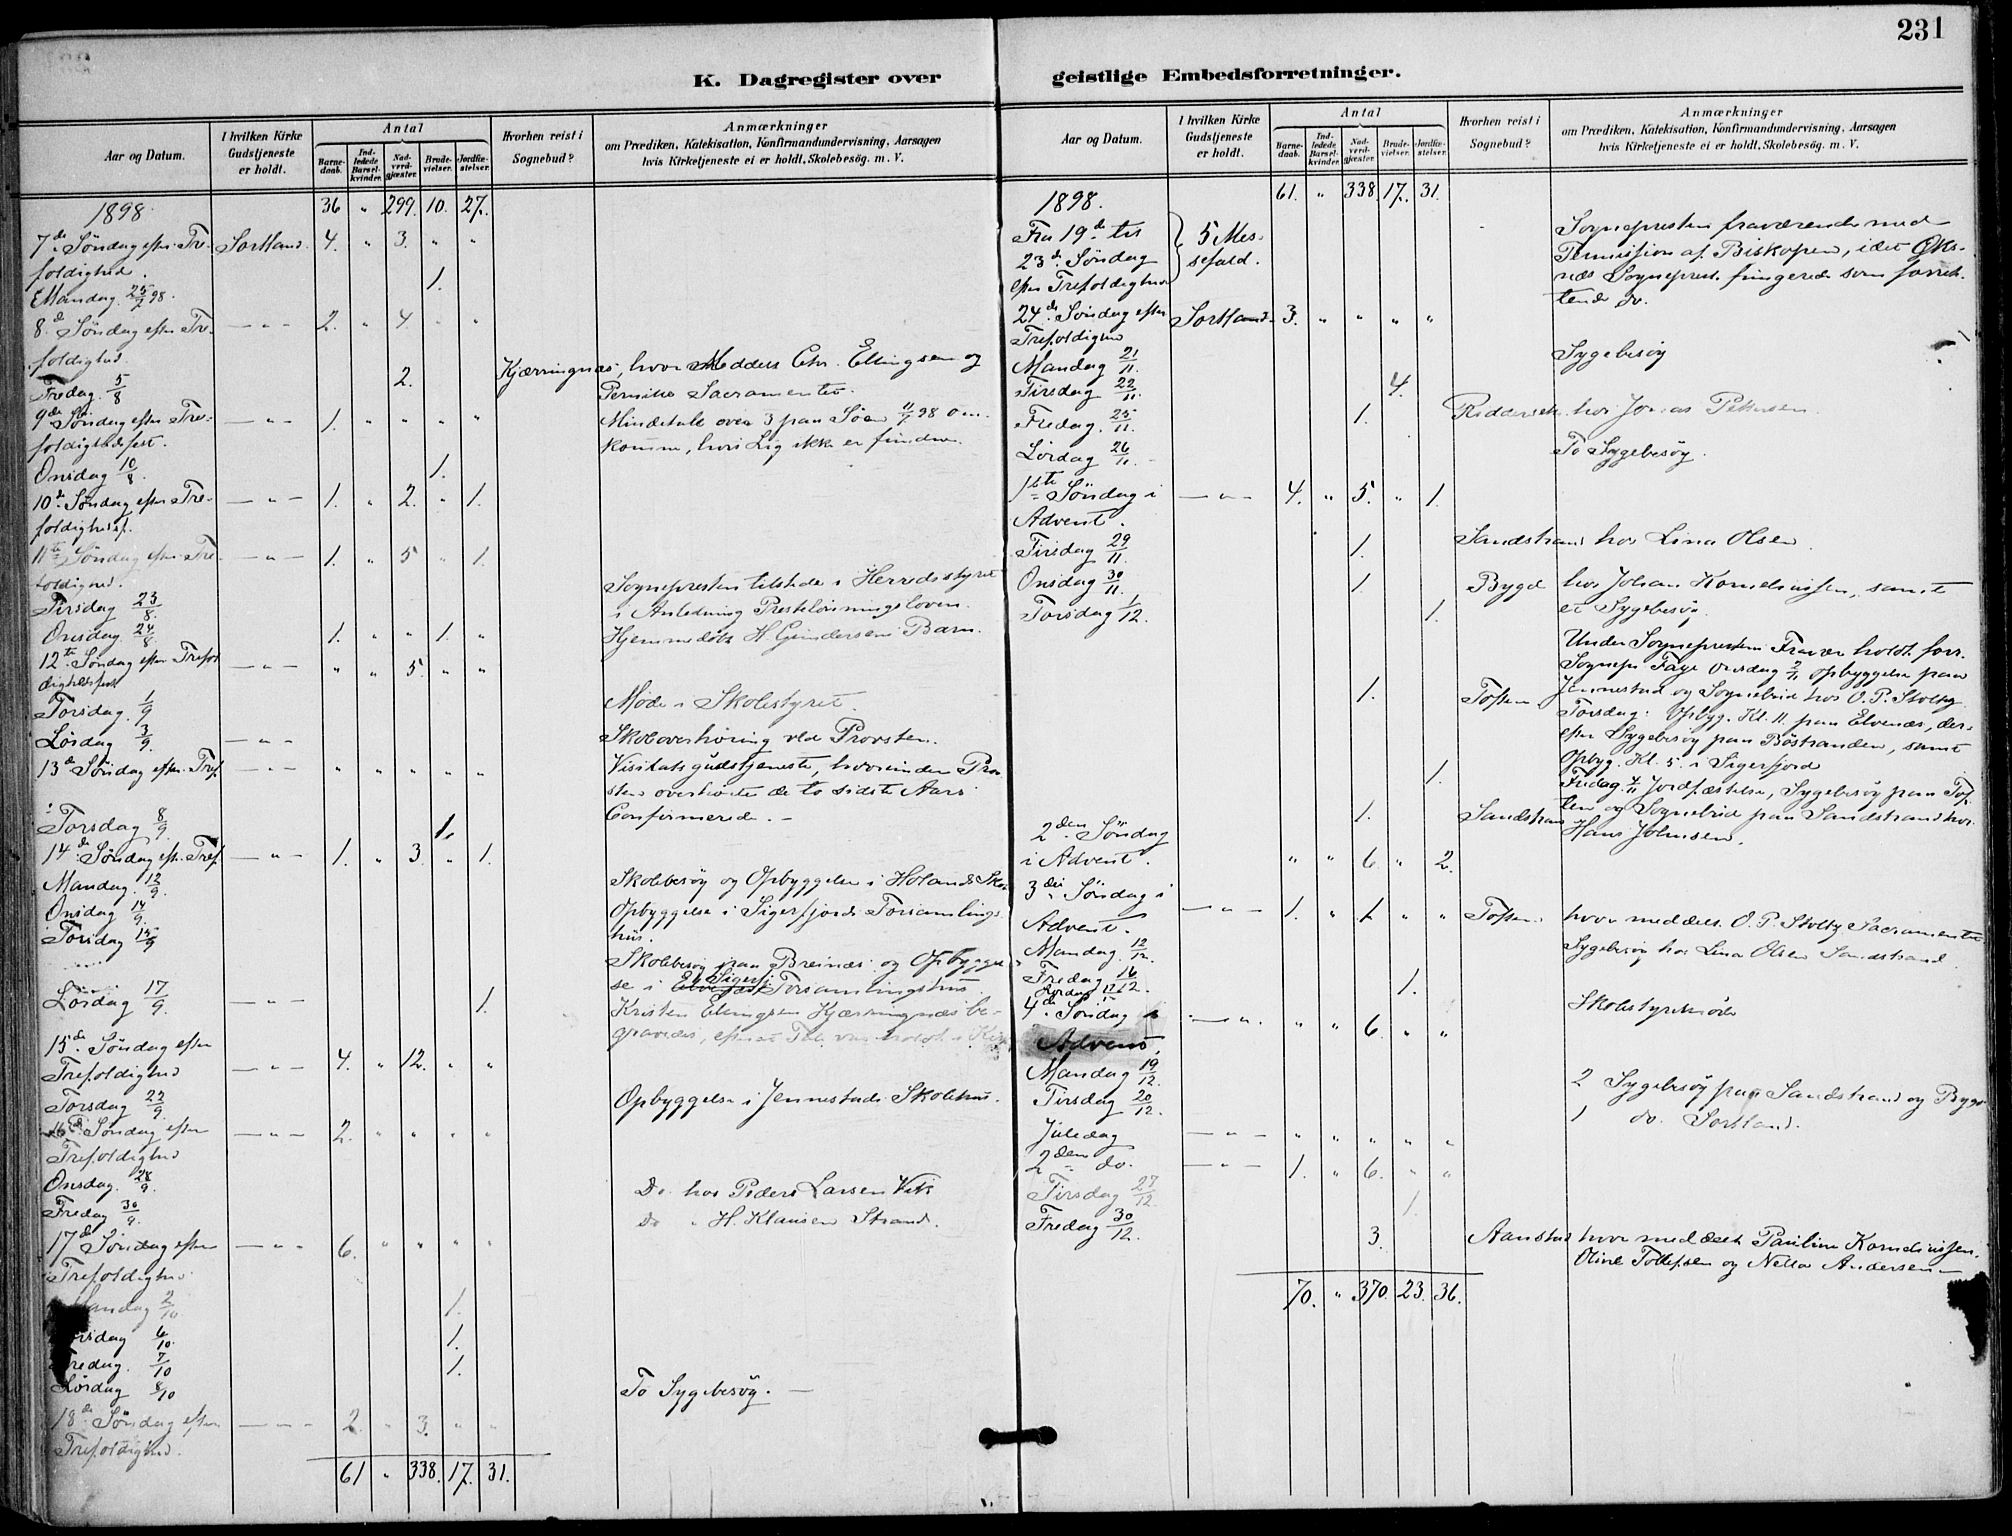 231
K. Dagregister over geistlige Embedsforretninger.
Aar og Datum.
I hvilken Kirke Gudstjeneste er holdt.
Antal
Barnedaab.
Indledede Barselkvinder.
Nadverdgjæster.
Brudevielser.
Jordfæstelser.
Hvorhen reist i Sognebud?
Anmærkninger
om Prædiken, Katekisation, Konfirmandundervisning, Aarsagen
hvis Kirketjeneste ei er holdt, Skolebesög. m. V.
1898. 36 " 299. 10. 27.
7de Søndag efter Tre- Sortland. 4. " 3. " "
foldighed.
Mandag 25/7 98. 1.
8de Søndag efter Tre- — " — 2. " 4. " "
foldighed.
Fredag 5/8 2. Kjærringnæs, hvor Meddeltes Chr. Ellingsen og
Pernike Sacramentet.
9de Søndag efter Tre- — " — 1. " " " " Mindetale over 3 paa Søen 11/7 98 om-
foldighedsfest. komne, hvis Lig ikke er fundne.
Onsdag 10/8. 1.
10de Søndag efter Tre- — " — 1. " 2. " 1.
foldighedsf.
11te Søndag efter Tre- — " — 1. " 5 " 1.
foldighed.
Tirsdag 23/8. Sognepresten tilstede i Herredsstyret
i Anledning Presteløningsloven.
Onsdag 24/8 1. " " 1. " Hjemmedøbt H. Gundersens Barn.
12te Søndag efter Trefol- — " — " " 5. " "
dighedsfest
Torsdag 1/9 Møde i Skolestyret.
Lørdag 3/9. — " — Skoleoverhøring ved Provsten.
13de Søndag efter Tref. — " — " " " " " Visitatsgudstjeneste, hvorunder Prov-
sten overhørte de to sidste Aars
Confirmerede. —
Torsdag 8/9. 1.
14de Søndag eft. Tref. — " — 1. " 3. " 1.
Mandag 12/9. Skolebesøg og Opbyggelse i Holands Skole
Onsdag 14/9. Opbyggelse i Sigerfjords Forsamlings-
hus.
Torsdag 15/9 Skolebesøg paa Breinæs og Opbyggel-
se i Sigerfj. Forsamlingshus.
Lørdag 17/9 — " — 1. Kristen Ellingsen Kjærringnæs be-
gravedes, efterat Tale var holdt i
15de Søndag efter
Trefoldighed — " — 4. " 12. " "
Torsdag 22/9. Opbyggelse i Jennestads Skolehus.
16de Søndag efter — " — 2. " " " "
Trefoldighed
Onsdag 28/9. Do. hos Peder Larsen Vik
Fredag 30/9. Do " H. Klausen Strand.
17de Søndag efter — " — 6. " " " "
Trefoldighed
Mandag 2/10 1.
Torsdag 6/10. 1.
Fredag 7/10 1.
Lørdag 8/10 To Sygebesøg. —
18de Søndag efter — " — 2. " 3. " "
Trefoldighed.
61 " 338. 17. 31.
Aar og Datum.
I hvilken Kirke Gudstjeneste er holdt.
Antal
Barnedaab.
Indledede Barselkvinder.
Nadverdgjæster.
Brudevielser.
Jordfæstelser.
Hvorhen reist i Sognebud?
Anmærkninger
om Prædiken, Katekisation, Konfirmandundervisning, Aarsagen
hvis Kirketjeneste ei er holdt, Skolebesög. m. V.
1898. 61. " 338. 17. 31.
Fra 19de til 5 Mes- Sognepresten fraværende med
23de Søndag sefald. Permission af Biskopen, idet Øks-
efter Trefoldighed næs Sogneprest fungerede som forret-
tende do.
24de Søndag efter Sortland. 3. " " " "
Trefoldighed
Mandag 21/11. Sygebesøg
Tirsdag 22/11. 4.
Fredag 25/11. 1. hos Jonas Pettersen.
Lørdag 26/11. To Sygebesøg.
1ste Søndag i — " — 4. " 5. " 1.
Advent.
Tirsdag 29/11 1. Sandstrand hos Lina Olsen.
Onsdag 30/11. 1. Bygd hos Johan Korneliussen, samt
et Sygebesøg.
Torsdag 1/12. 1.
Under Sogneprestens Fravær holdt forr.
Sognepr. Faye Onsdag 2/11 Opbyggelse paa
1. Toften Jennestad og Sognebud hos O. P. Stolby
Torsdag: Opbyg. Kl. 11 paa Elvenæs, der-
efter Sygebesøg paa Bøstranden, samt
Opbyg. Kl. 5. i Sigerfjord
1. Fredag 4/11 Jordfæstelse, Sygebesøg paa Tof-
1. Sandstrand ten og Sognebud paa Sandstrand hos
Hans Johnsen.
2den Søndag
i Advent. " " 6 " 2.
3die Søndag i
Advent. — " — 1. " 1 " " Toften hvor meddeltes O. P. Stolby Sacramentet
Mandag 12/12. Sygebesøg hos Lina Olsen Sandstrand
Fredag 16/12. 1.
Lørdag 17/12. Skolestyremøde
4de Søndag i — " — " " 6. " "
Advent.
Mandag 19/12. 2 Sygebesøg paa Sandstrand og Bygd
Tirsdag 20/12. 1 do. Sortland.
Juledag — " — " " " " "
2den do. — " — 1. " 6. " "
Tirsdag 27/12. 1.
Fredag 30/12. 3. Aanstad hvor meddeltes Pauline Korneliussen,
Oline Tollefsen og Nella Andersen —
70. " 370. 23. 36.